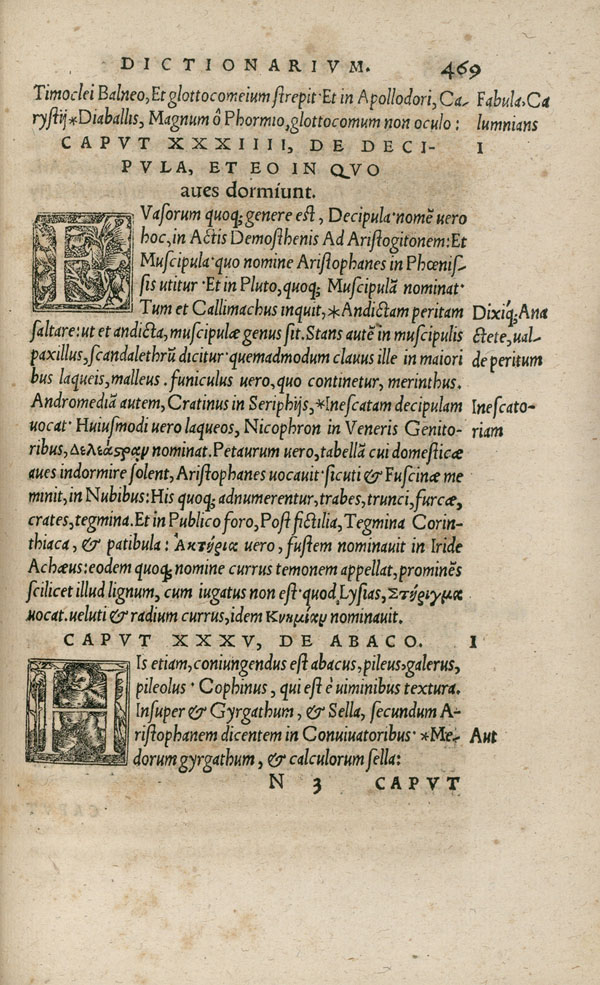 DICTIONARIVM. 469
Timoclei Balneo, Et glottocomeium strepit· Et in Apollodori, Ca- Fabula, Ca
rystij *Diaballis, Magnum ô Phormio, glottocomum non oculo: lumnians
CAPVT XXXIIII, DE DECI- I
PVLA, ET EO IN QVO
aues dormiunt.
EVasorum quoq; genere est, Decipula· nomẽ uero
hoc, in Actis Demosthenis Ad Aristogitonem: Et
Muscipula· quo nomine Aristophanes in Phœnis-
sis utitur· Et in Pluto, quoq; Muscipulã nominat·
Tum et Callimachus inquit, *Andictam peritam Dixiq́; Ana
saltare: ut et andicta, muscipulæ genus sit. Stans autẽ in muscipulis ctete, ual-
paxillus, scandalethrũ dicitur· quemadmodum clauus ille in maiori de peritum
bus laqueis, malleus. funiculus uero, quo continetur, merinthus.
Andromediã autem, Cratinus in Seriphijs, *Inescatam decipulam Inescato-
uocat· Huiusmodi uero laqueos, Nicophron in Veneris Genito- riam
ribus, Δελεάστραν nominat. Petaurum uero, tabellã cui domesticæ
aues indormire solent, Aristophanes uocauit· sicuti & Fuscinæ me
minit, in Nubibus: His quoq; adnumerentur, trabes, trunci, furcæ,
crates, tegmina. Et in Publico foro, Post fictilia, Tegmina Corin-
thiaca, & patibula: Ἀκτήρια uero, fustem nominauit in Iride
Achæus: eodem quoq; nomine currus temonem appellat, prominẽs
scilicet illud lignum, cum iugatus non est· quod Lysias, Στήριγμα
uocat. ueluti & radium currus, idem Κνημίαν nominauit.
CAPVT XXXV, DE ABACO. I
HIs etiam, coniungendus est abacus, pileus, galerus,
pileolus· Cophinus, qui est è uiminibus textura.
Insuper & Gyrgathum, & Sella, secundum A-
ristophanem dicentem in Conuiuatoribus· *Me- Aut
dorum gyrgathum, & calculorum sella:
N 3 CAPVT